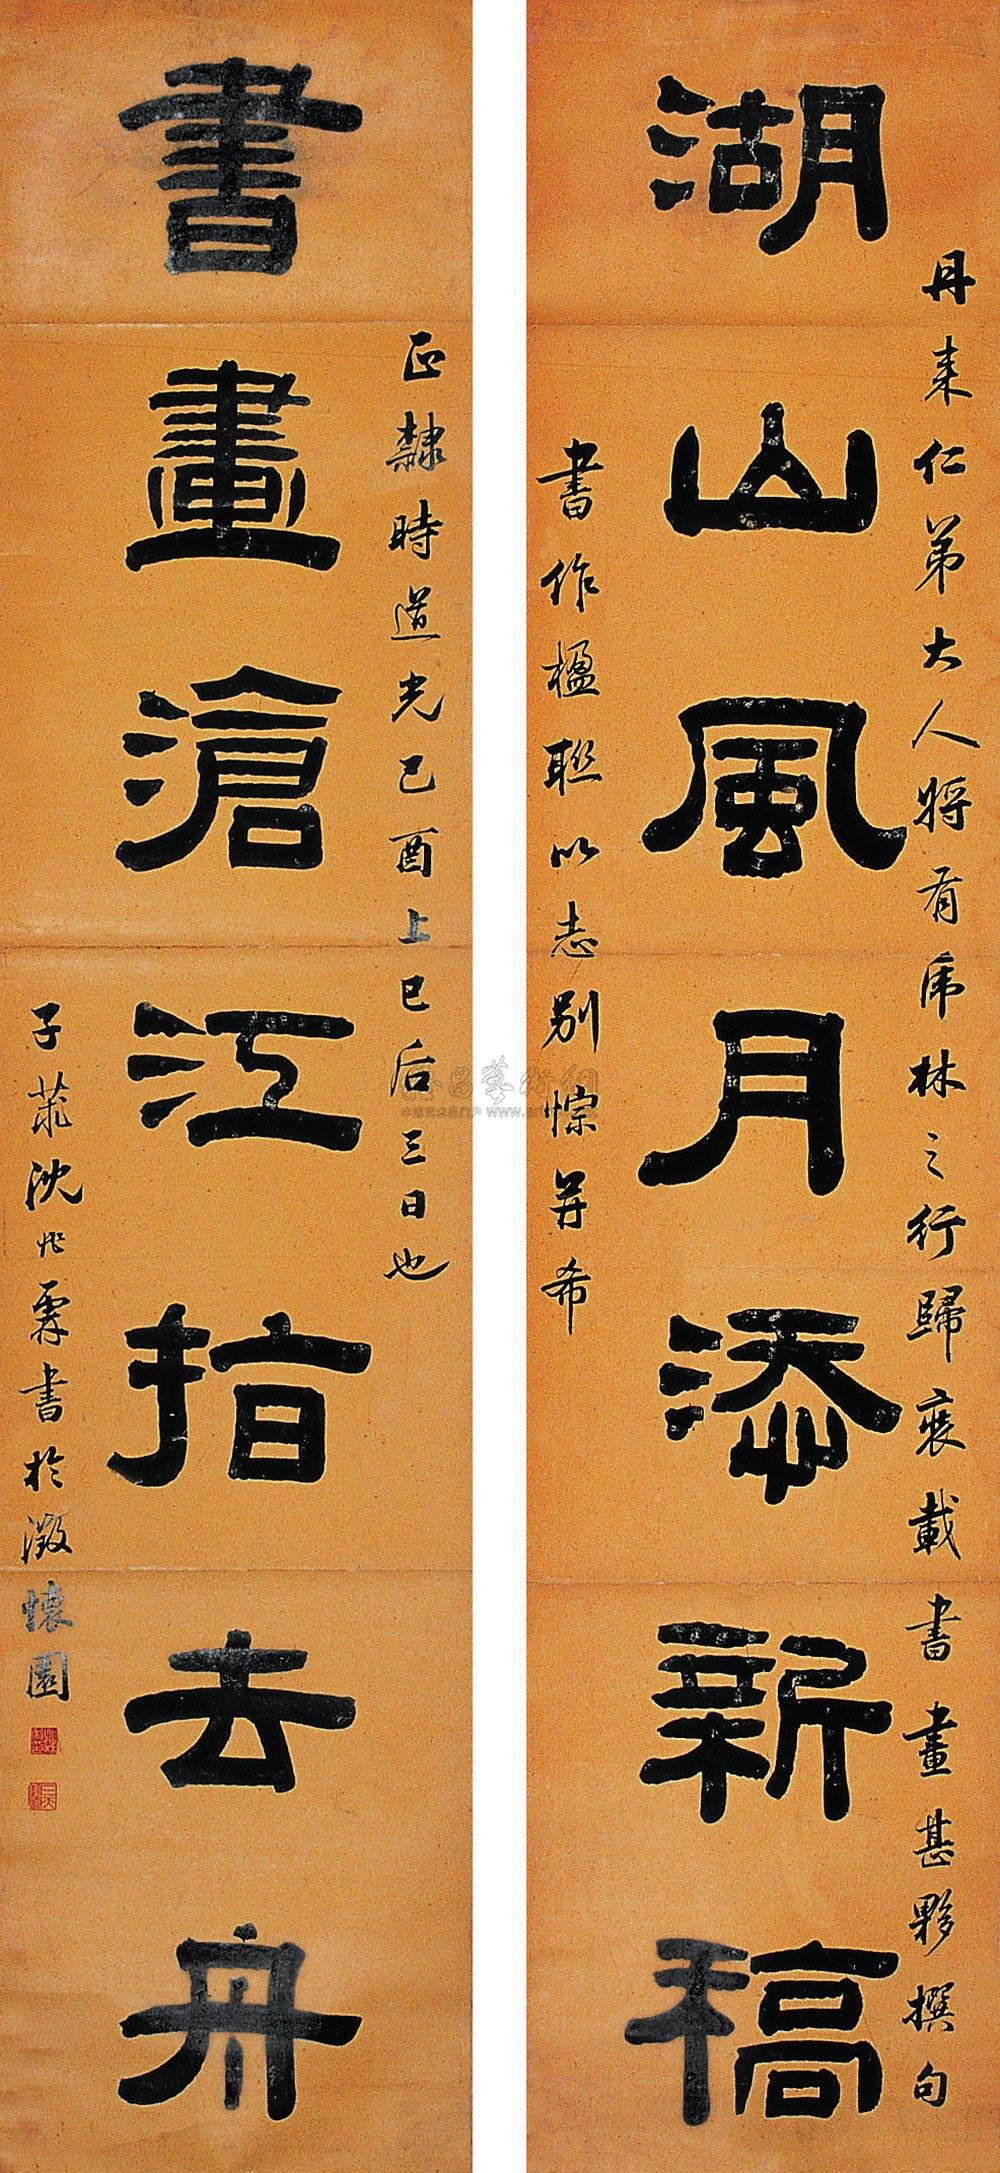 丹来仁弟大人將有虎林之行歸裝載書畫甚夥撰句
湖山風月添新稿
書作楹聯以志別悰并希
正隸時道光己酉上巳后三日也
書畫滄江指去舟
子菉沈兆霖書於澂懷園